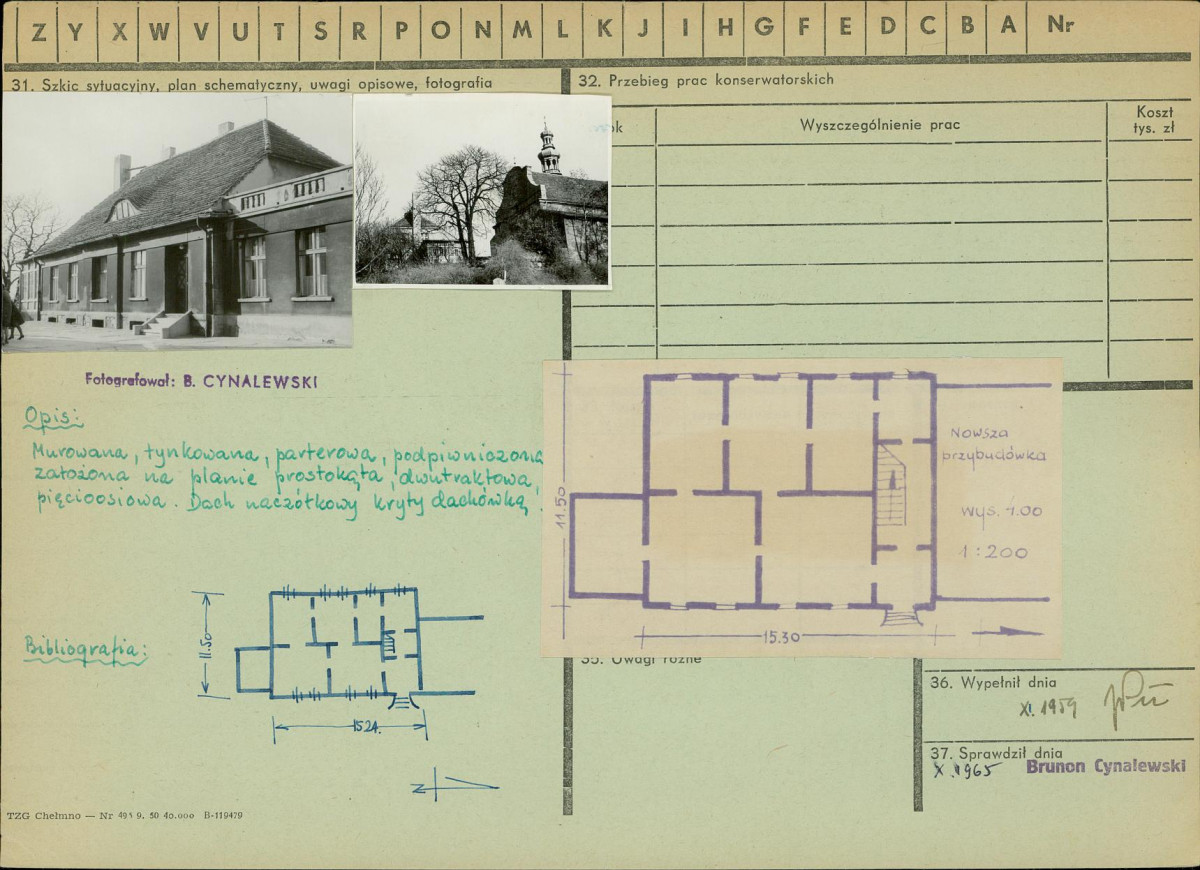 Z Y X W V U T S R P O N M L K J I H G F E D C B A Nr
31. Szkic sytuacyjny, plan schematyczny, uwagi opisowe, fotografia
32. Przebieg prac konserwatorskich
ok
Wyszczególnienie prac
Koszt
tys. zł
Fotografował: B. CYNALEWSKI
Opis:
Murowana, tynkowana, parterowa, podpiwniczona
założona na planie prostokąta, dwutraktowa,
pięcioosiowa. Dach naczółkowy kryty dachówką.
Bibliografia:
11.50
15.24.
N
11.50
15.30
Nowsza
przybudówka
wys. 4.00
1:200
35. Uwagi różne
36. Wypełnił dnia
XI. 1959
37. Sprawdził dnia
X. 1965 Brunon Cynalewski
TZG Chełmno — Nr 493 9. 50 40.000 B-119479